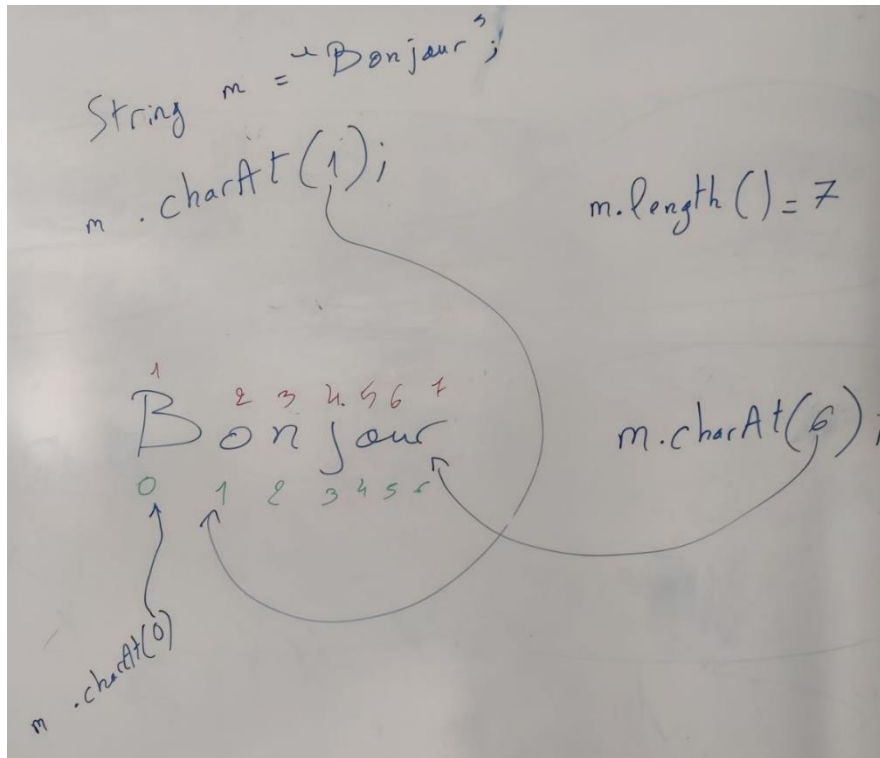 String m = "Bonjour";
m.charAt(1);
m.length() = 7
1 2 3 4 5 6 7
Bonjour
0 1 2 3 4 5 6
m.charAt(6);
m.charAt(0)